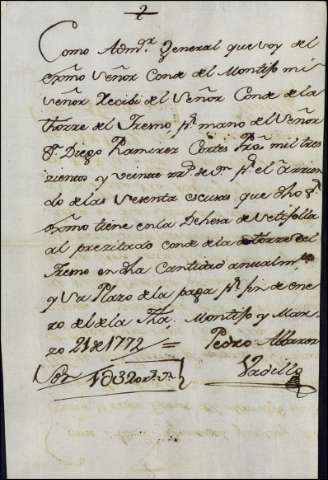 2
Como Adm.or General que soy del
Exmo Señor Conde del Montijo mi
Señor Recibi del Señor Conde de la
thorre del Fresno pr mano del Señor
Dn Diego Ramirez Cortes Pro mil tres
zientos y veinte rrs de Vn pr el Arrien
do de las sesenta escusas que dho Sr
Exmo tiene en la Dehesa de
al prezitado conde de la torre del
Fresno en dha Cantidad anualmte
y su Plazo de la paga pr fin de ene
ro del de la fha. Montijo y Mar
zo 21 de 1772 =
Pedro
Vadillo
Son 1320 rs Vn